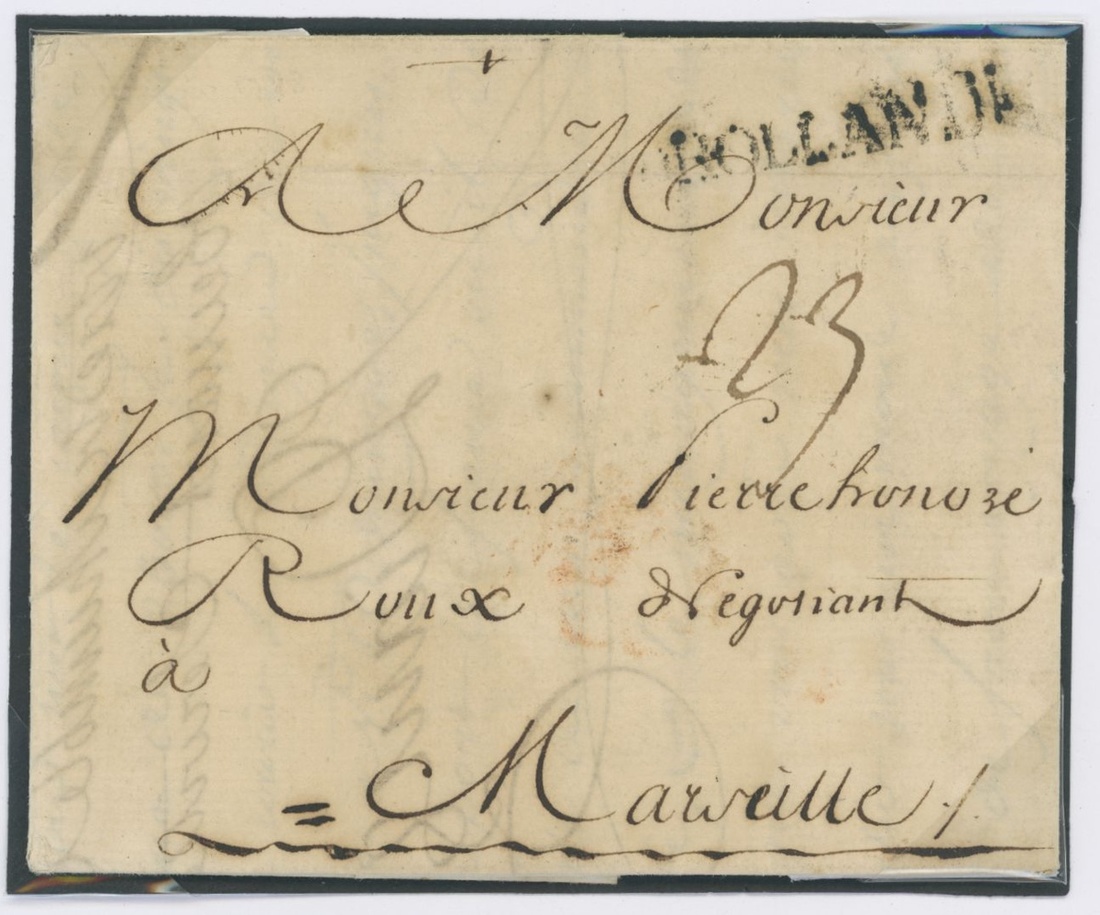 HOLLANDE
A Monsieur
23
Monsieur Pierre honoré
Roux Negotiant
à
= Marseille ./.